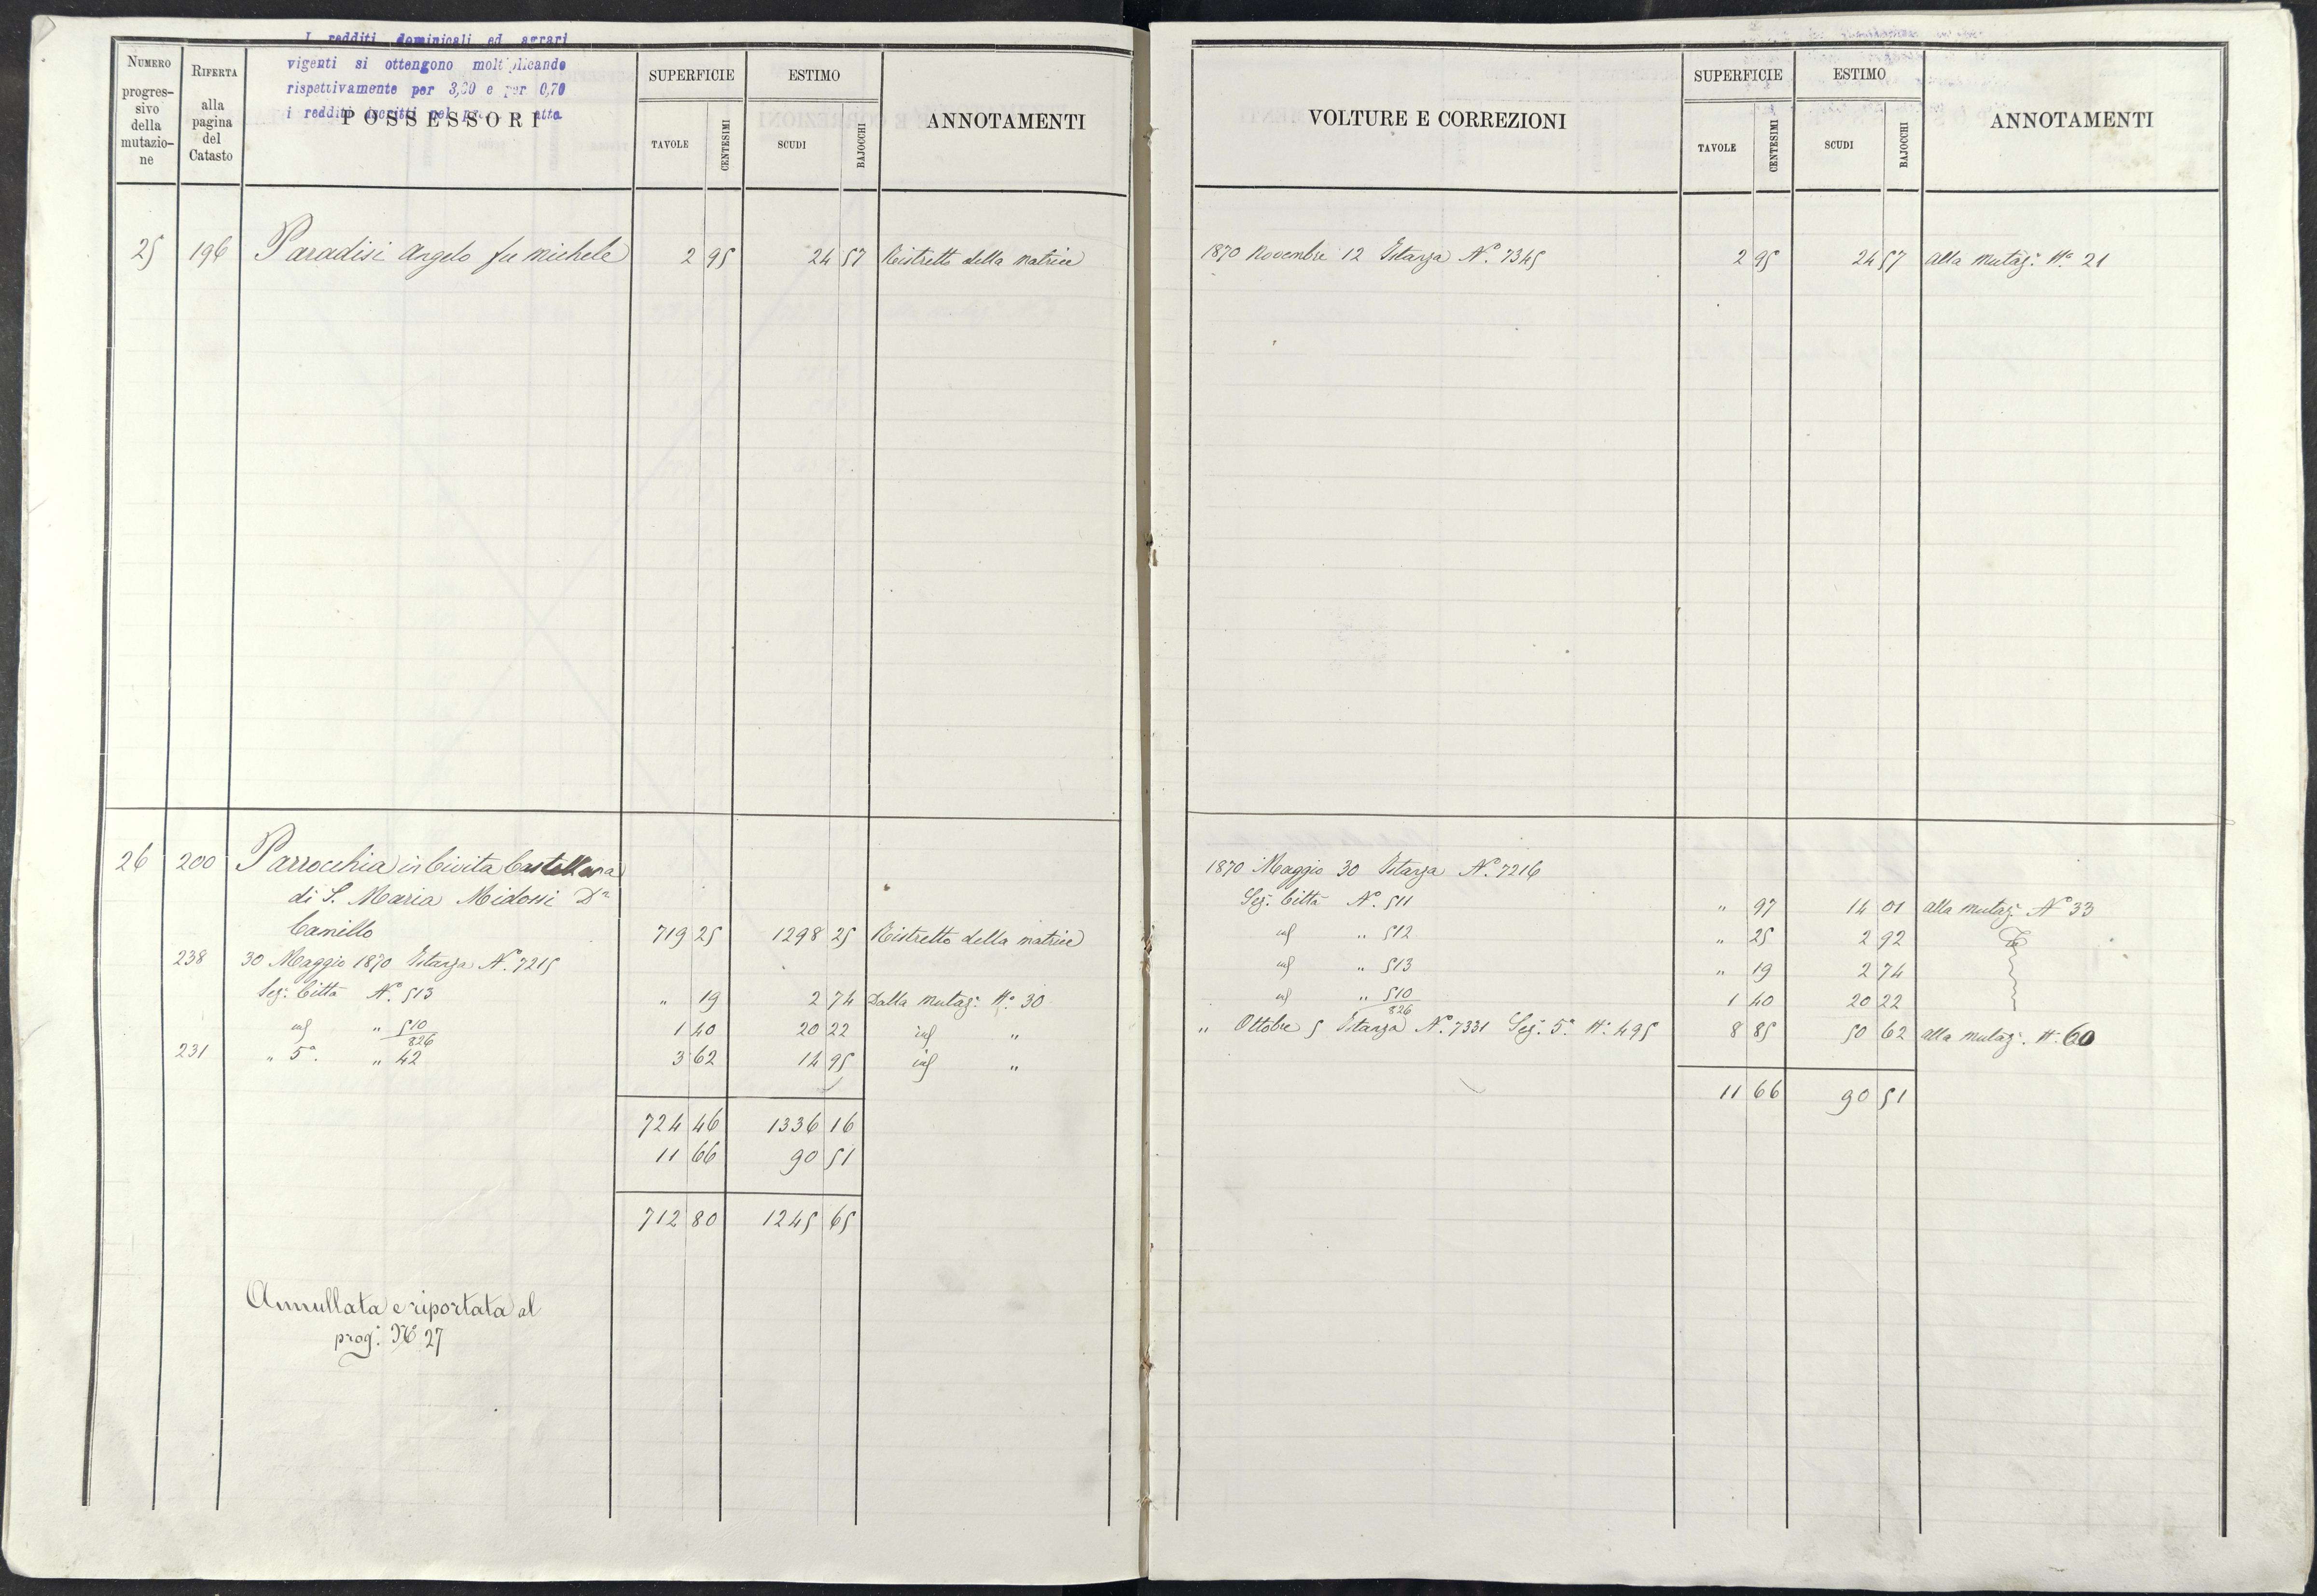 I redditi dominicali ed agrari
vigenti si ottengono moltiplicando
rispettivamente per 3,30 e per 0,70
i redditi iscritti nel atto
NUMERO progressivo della mutazione
RIFERTA alla pagina del Catasto
POSSESSORI
SUPERFICIE
TAVOLE CENTESIMI
ESTIMO
SCUDI BAJOCCHI
ANNOTAMENTI
25 196 Paradisi Angelo fu Michele 2 95 24 57 Ristretto della matrice
26 200 Parrocchia in Civita Castellana
di S. Maria Midossi Dn
Camillo 719 25 1298 25 Ristretto della matrice
238 30 Maggio 1870 Istanza N.º 7215
Sez: Città Nº 513 " 19 2 74 Dalla mutaz: Nº 30
id " 510/826 1 40 20 22 id "
231 " 5ª " 42 3 62 14 95 id "
724 46 1336 16
11 66 90 51
712 80 1245 65
Annullata e riportata al
prog: Nº 27
VOLTURE E CORREZIONI
SUPERFICIE
TAVOLE CENTESIMI
ESTIMO
SCUDI BAJOCCHI
ANNOTAMENTI
1870 Novembre 12 Istanza Nº 7345 2 95 24 57 alla mutaz: Nº 21
1870 Maggio 30 Istanza Nº 7216
Sez: Città Nº 511 " 97 14 01 alla mutaz: Nº 33
id " 512 " 25 2 92
id " 513 " 19 2 74
id " 510/826 1 40 20 22
" Ottobre 5 Istanza Nº 7331 Sez: 5ª Nº 495 8 85 50 62 alla mutaz: Nº 60
11 66 90 51